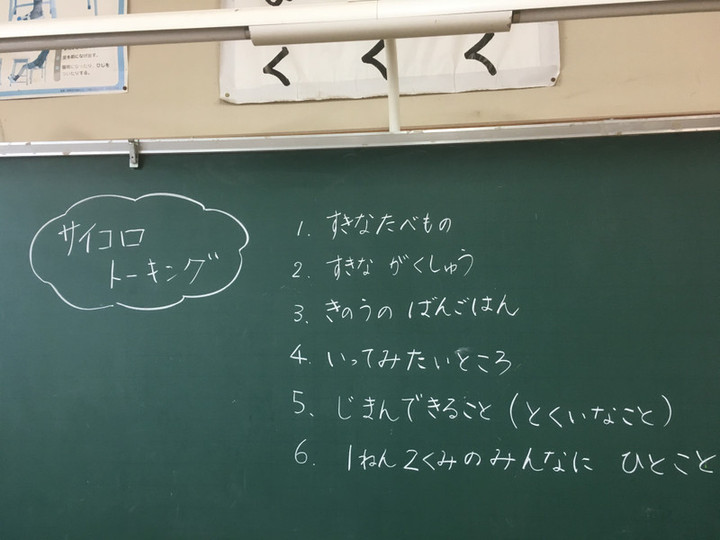 く く く
サイコロ
トーキング
1. すきなたべもの
2. すきな がくしゅう
3. きのうの ばんごはん
4. いってみたいところ
5. じまんできること(とくいなこと)
6. 1ねん2くみのみんなに ひとこと